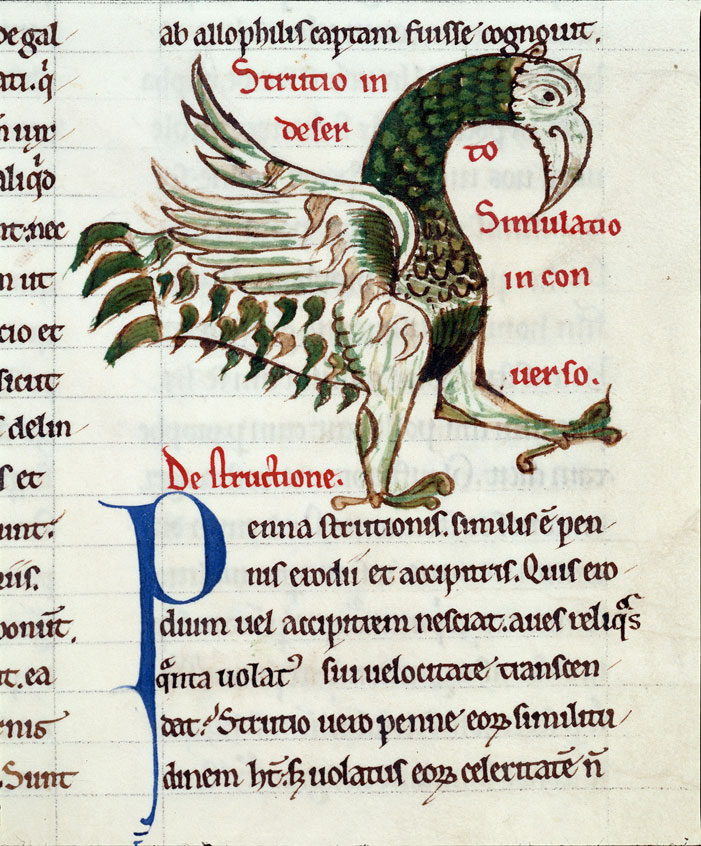 degal
aliq̄d
nt. nec
m ut
cio et
sicut
delin
s et
unt:
riis.
ponūt.
t. ea
rnis
. Sunt
ab allophilis captam fuisse cognouit.
Strutio in
deser
to
Simulatio
in con
uerso.
De structione.
Penna strutionis. similis ē pen
nis erodii et accipitris. Quis ero
dium uel accipitrem nesciat. aues reliqᵃs
qᵃnta uolatꝰ sui uelocitate transcen
dat? Strutio uero penne eoꝝ similitu
dinem ht̄. sꝫ uolatus eoꝝ celeritatē n̄